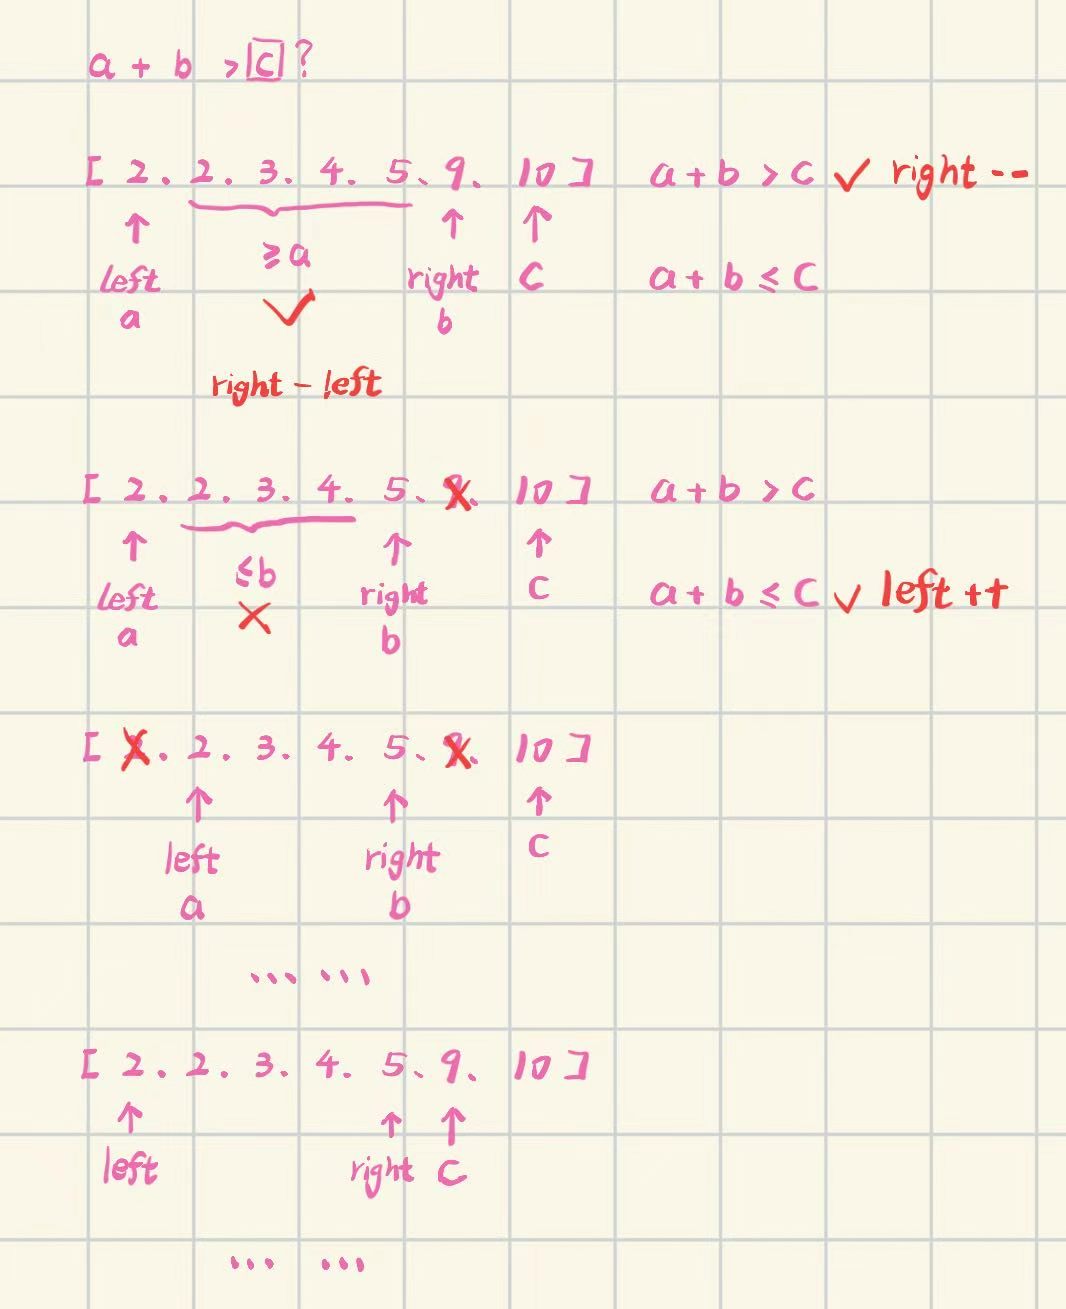 a + b > c ?
[ 2. 2. 3. 4. 5、9、 10 ] a + b > c ✓ right --
↑ ↑ ↑
left ≥ a right c a + b ≤ c
a ✓ b
right - left
[ 2. 2. 3. 4. 5、 10 ] a + b > c
↑ ↑ ↑
left ≤ b right c a + b ≤ c ✓ left ++
a × b
[ 2. 3. 4. 5、 10 ]
↑ ↑ ↑
left right c
a b
... ...
[ 2. 2. 3. 4. 5、9、 10 ]
↑ ↑ ↑
left right c
... ...